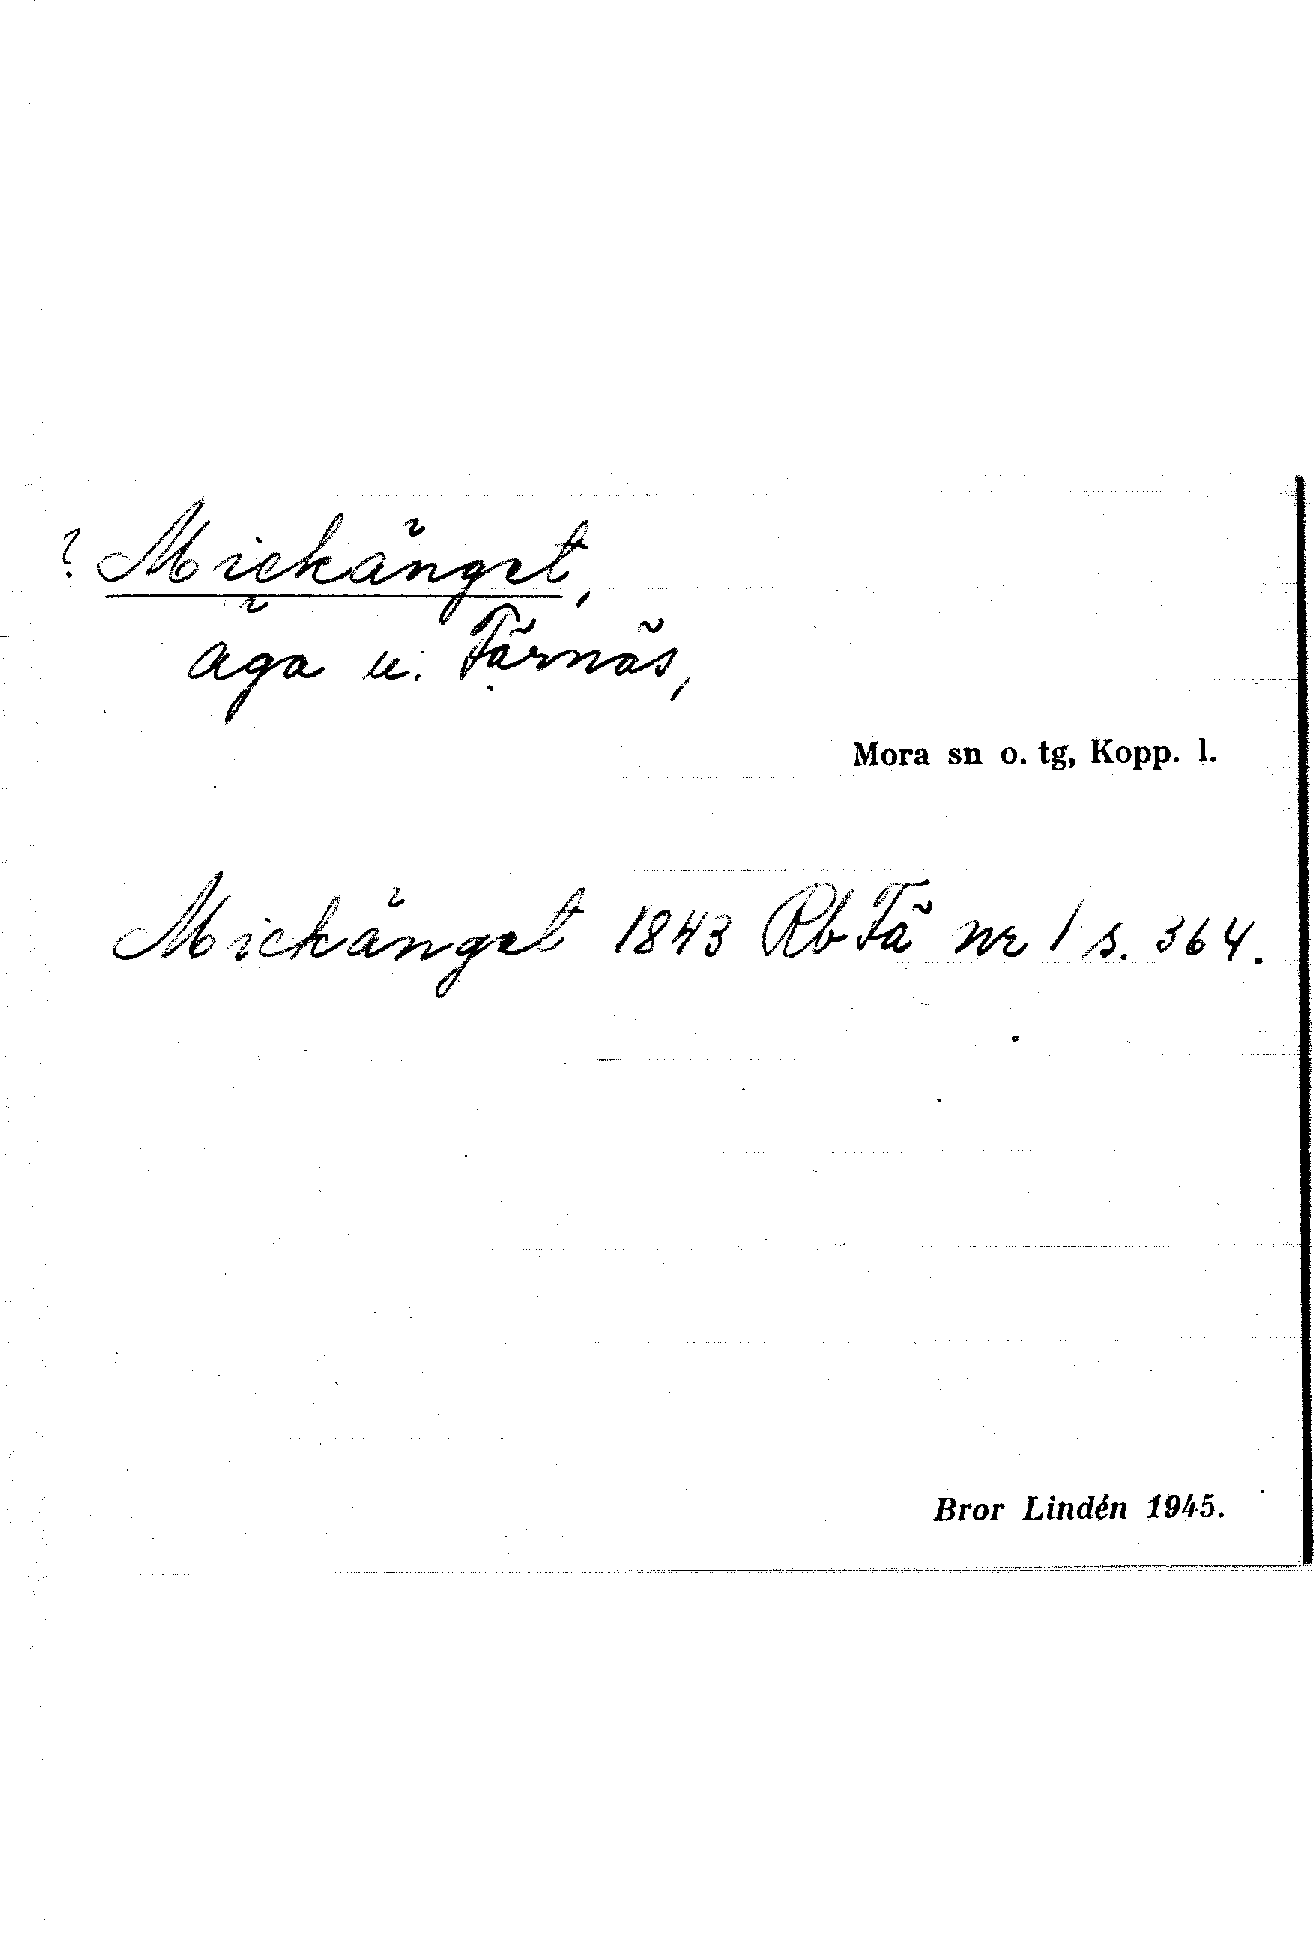 ? Mickänget,
äga u. Färnäs,
Mora sn o. tg, Kopp. l.
Mickänget 1843 Rb Fä nr 1 s. 364.
Bror Lindén 1945.